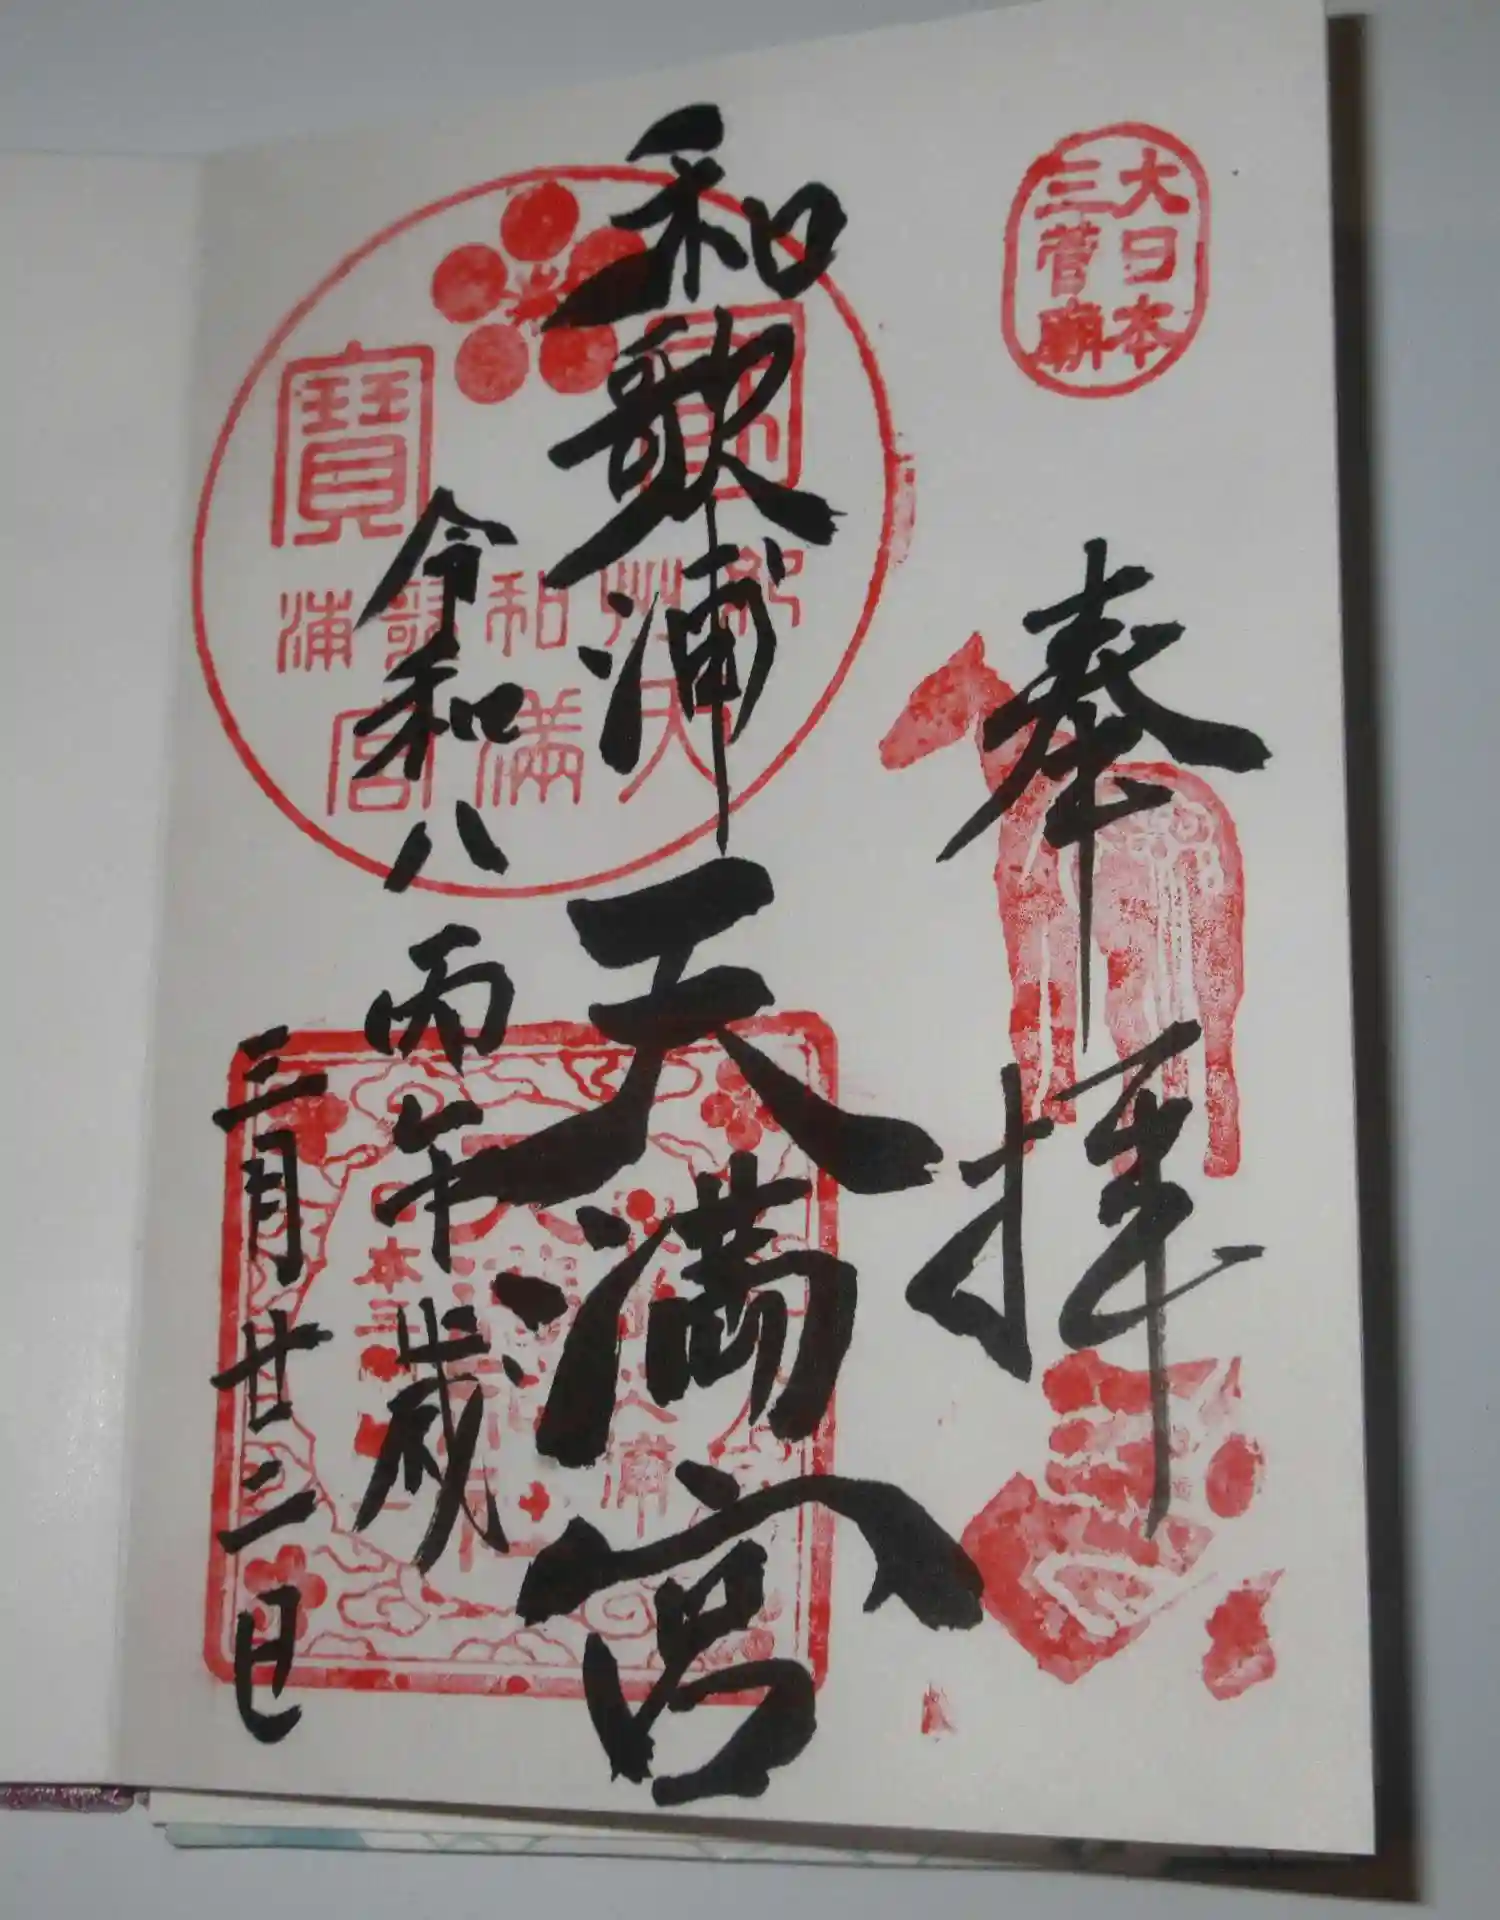 大日本
三菅廟
奉拝
和歌浦天満宮
令和八丙午歳
三月廿二日
寶
紀州和歌浦
天満宮